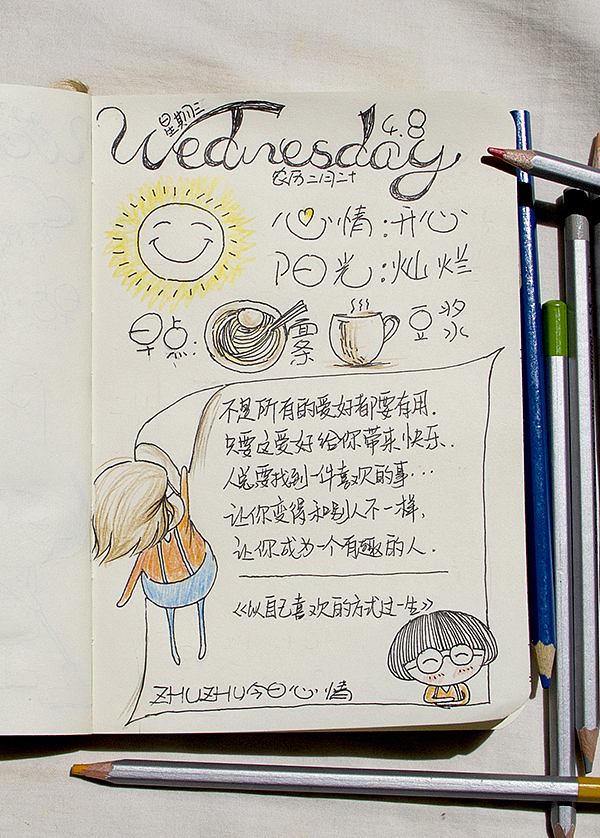 星期三
Wednesday
4.8
农历二月二十
心情:开心
阳光:灿烂
早点:面条 豆浆
不是所有的爱好都要有用.
只要这爱好给你带来快乐..
人总要找到一件喜欢的事...
让你变得和别人不一样,
让你成为一个有趣的人.
《以自己喜欢的方式过一生》
ZHUZHU今日心情